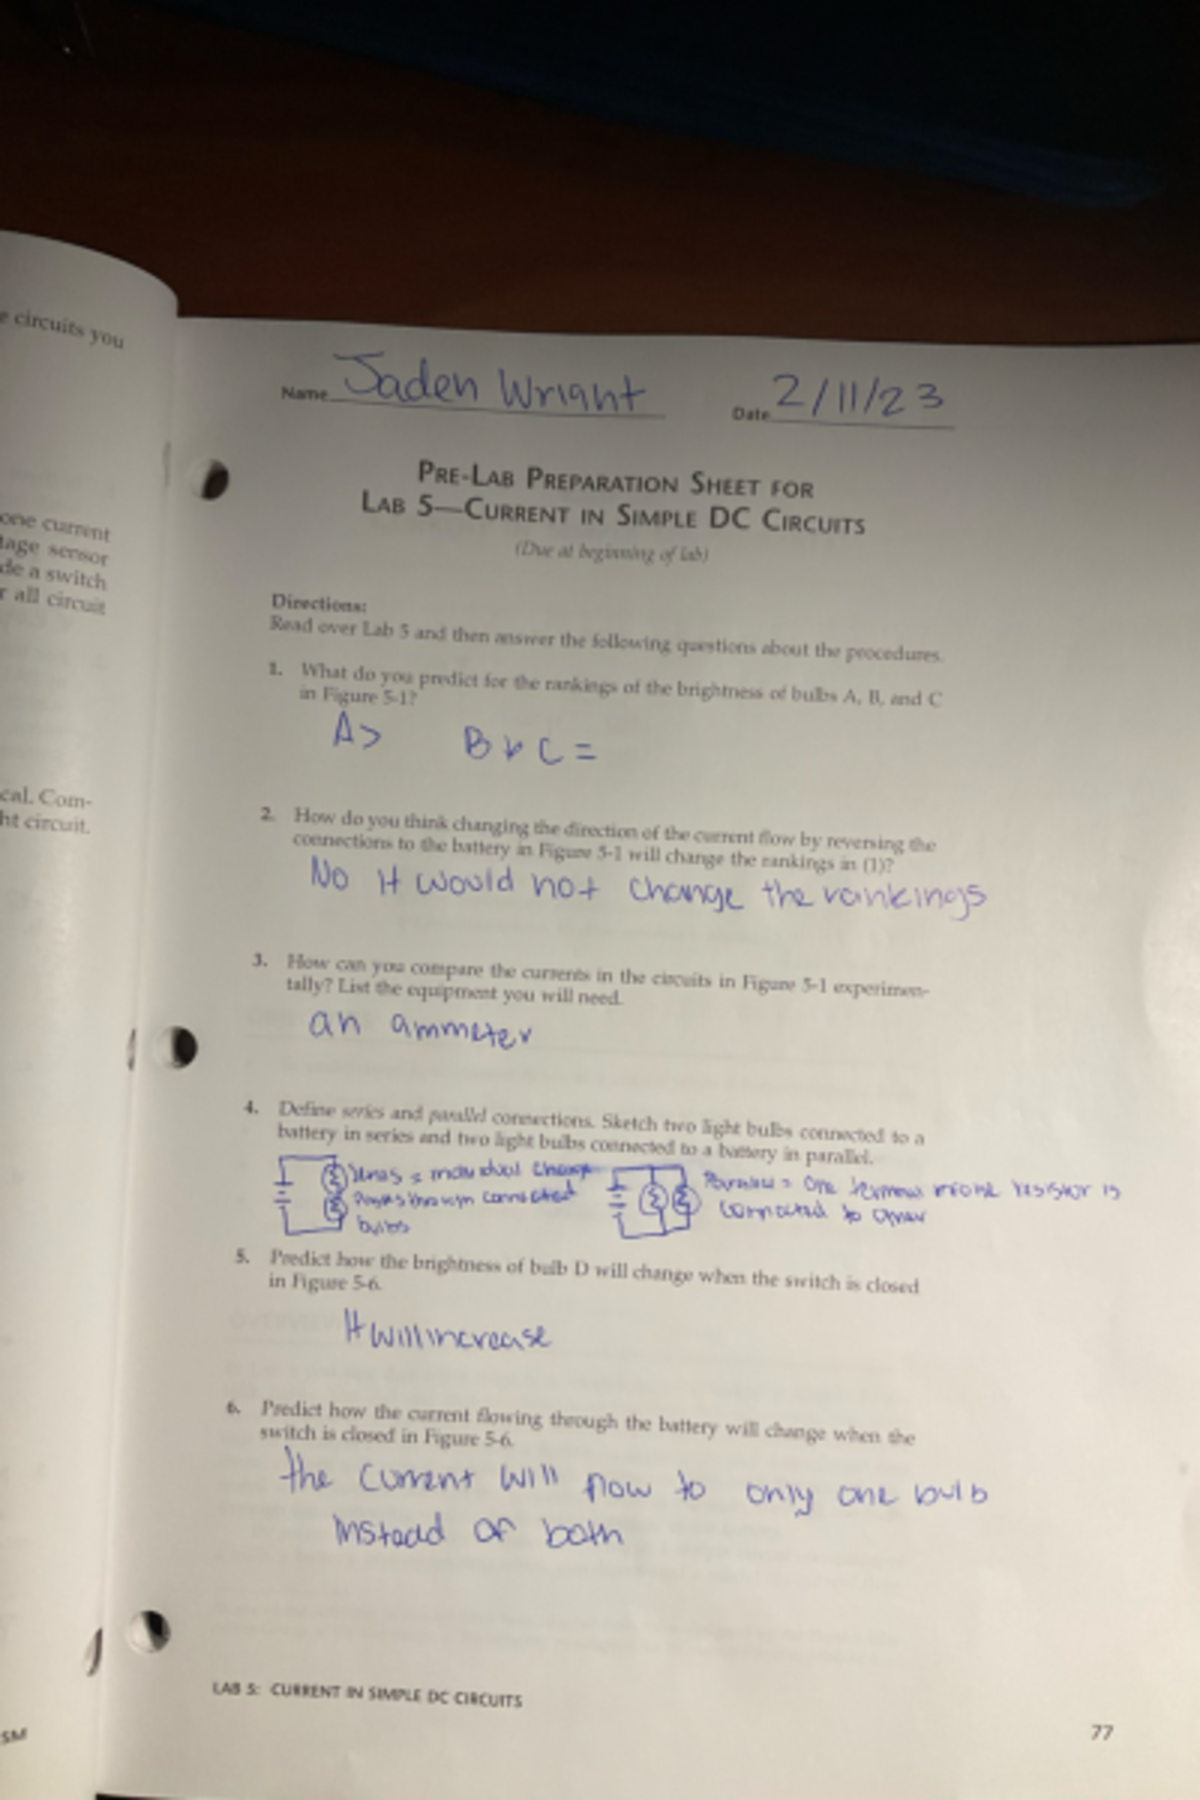 e circuits you
one current
tage sensor
de a switch
r all circuit
cal. Com-
ht circuit.
SM
Name Jaden Wright Date 2/11/23
PRE-LAB PREPARATION SHEET FOR
LAB 5—CURRENT IN SIMPLE DC CIRCUITS
(Due at beginning of lab)
Directions:
Read over Lab 5 and then answer the following questions about the procedures.
1. What do you predict for the rankings of the brightness of bulbs A, B, and C
in Figure 5-1?
A> B & C =
2. How do you think changing the direction of the current flow by reversing the
connections to the battery in Figure 5-1 will change the rankings in (1)?
No it would not change the rankings
3. How can you compare the currents in the circuits in Figure 5-1 experimen-
tally? List the equipment you will need.
an ammeter
4. Define series and parallel connections. Sketch two light bulbs connected to a
battery in series and two light bulbs connected to a battery in parallel.
Series = individual charge
passes through connected
bulbs
Parallel = one resistor is
connected to
5. Predict how the brightness of bulb D will change when the switch is closed
in Figure 5-6.
It will increase
6. Predict how the current flowing through the battery will change when the
switch is closed in Figure 5-6.
the current will flow to only one bulb
instead of both
LAB 5: CURRENT IN SIMPLE DC CIRCUITS
77